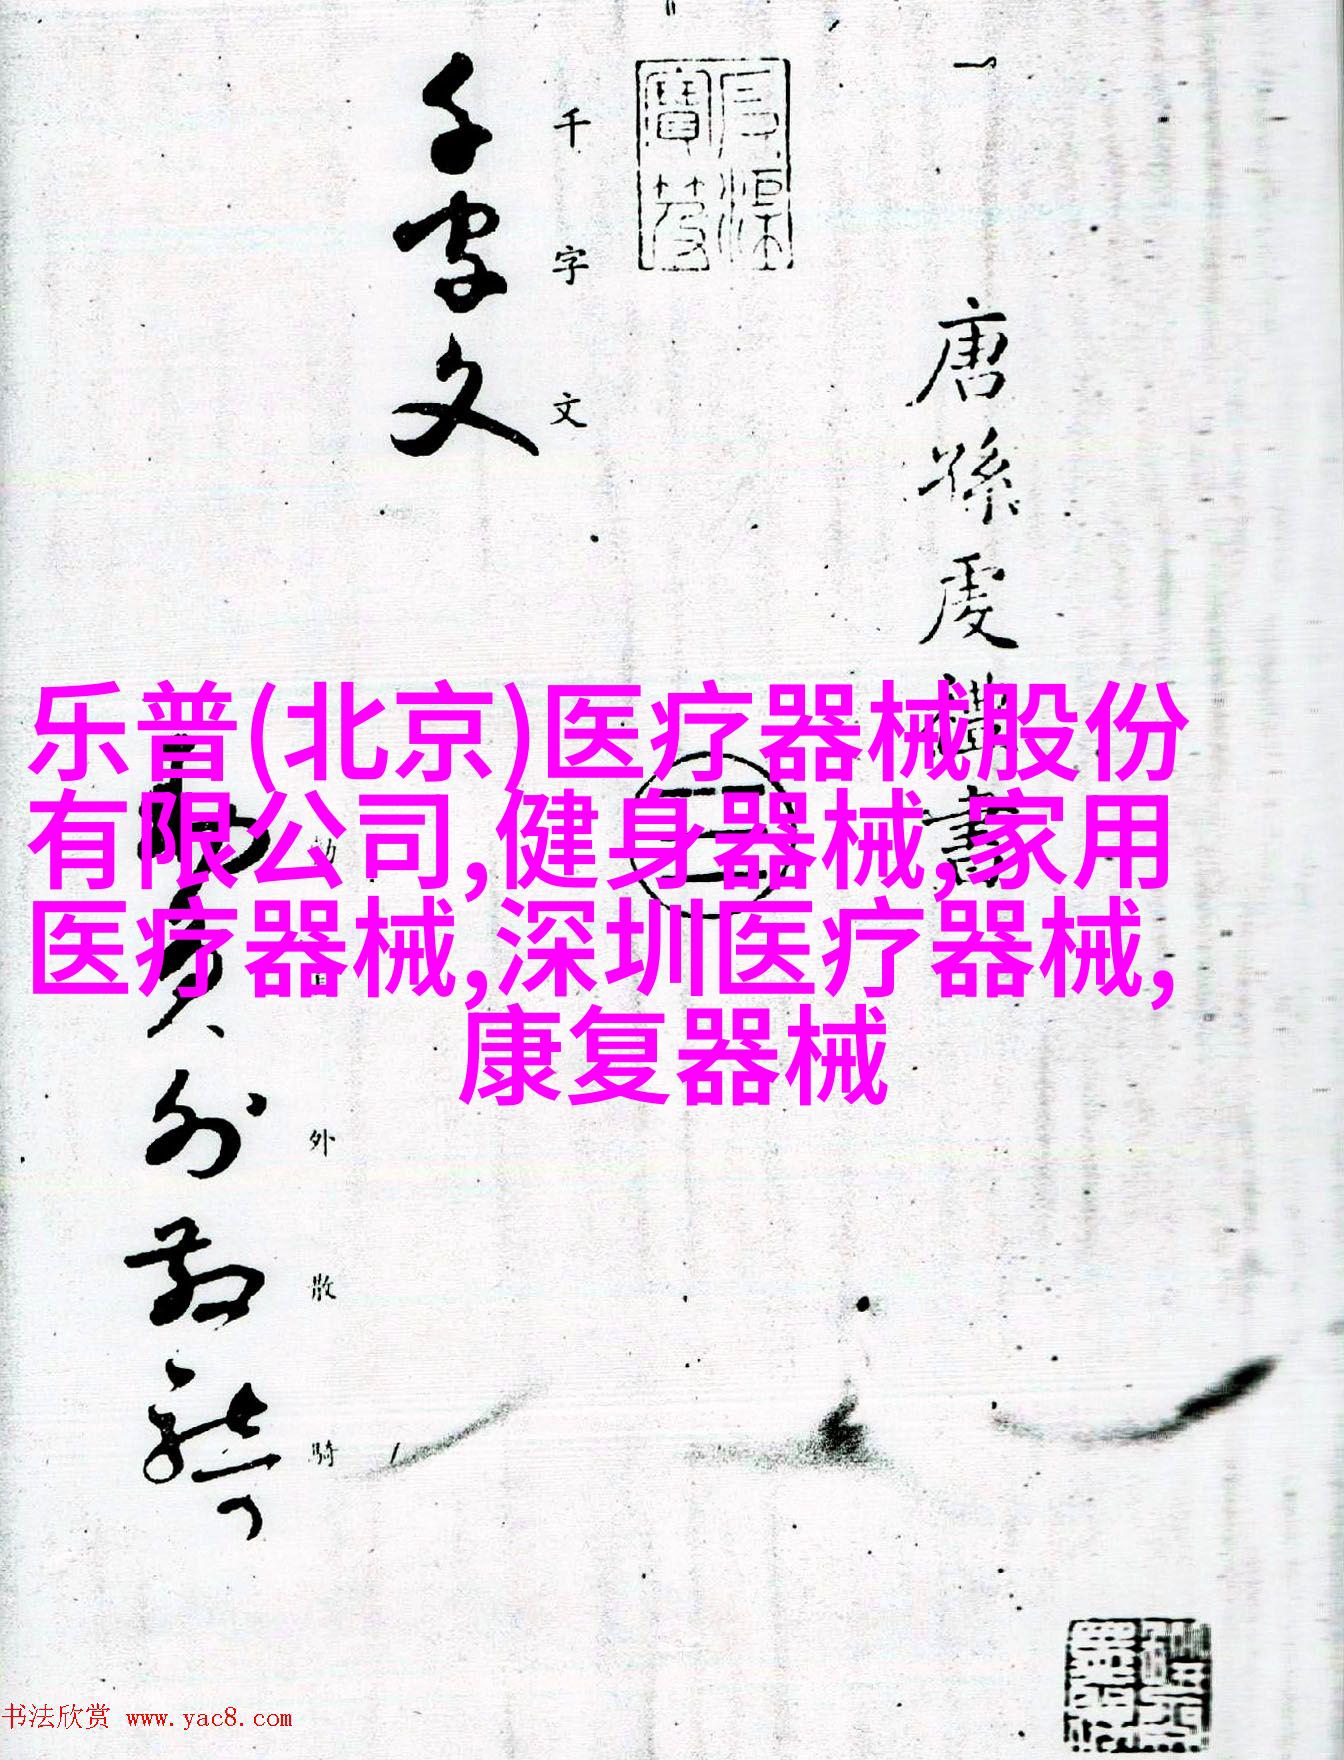 唐孫虔禮書
千字文
千字文
外散騎
外散騎
乐普(北京)医疗器械股份
有限公司,健身器械,家用
医疗器械,深圳医疗器械,
康复器械
书法欣赏 www.yac8.com